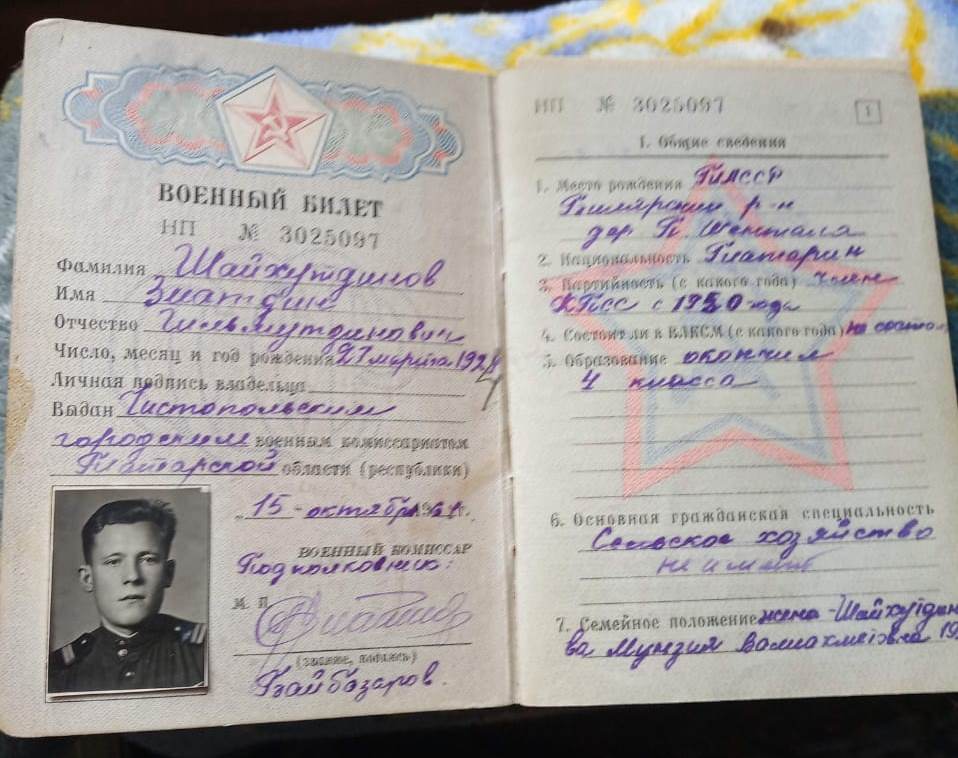 ВОЕННЫЙ БИЛЕТ
НП № 3025097
Фамилия Шайхутдинов
Имя Зиатдин
Отчество Гильмутдинович
Число, месяц и год рождения 27 марта 192
Личная подпись владельца
Выдан Чистопольским
городским военным комиссариатом
Татарской области (республики)
„15 - октября 196 г.
ВОЕННЫЙ КОМИССАР
Подполковник:
М. П.
(звание, подпись)
Байбазаров.
НП № 3025097
1
1. Общие сведения
1. Место рождения ТАССР
Билярский р-н
дер Т. Шентала
2. Национальность Татарин
3. Партийность (с какого года) член
КПСС с 1950 года
4. Состоял ли в ВЛКСМ (с какого года) не состоял
5. Образование окончил
4 класса
6. Основная гражданская специальность
Сельское хозяйство
не имеет
7. Семейное положение жена - Шайхутдино
ва 19